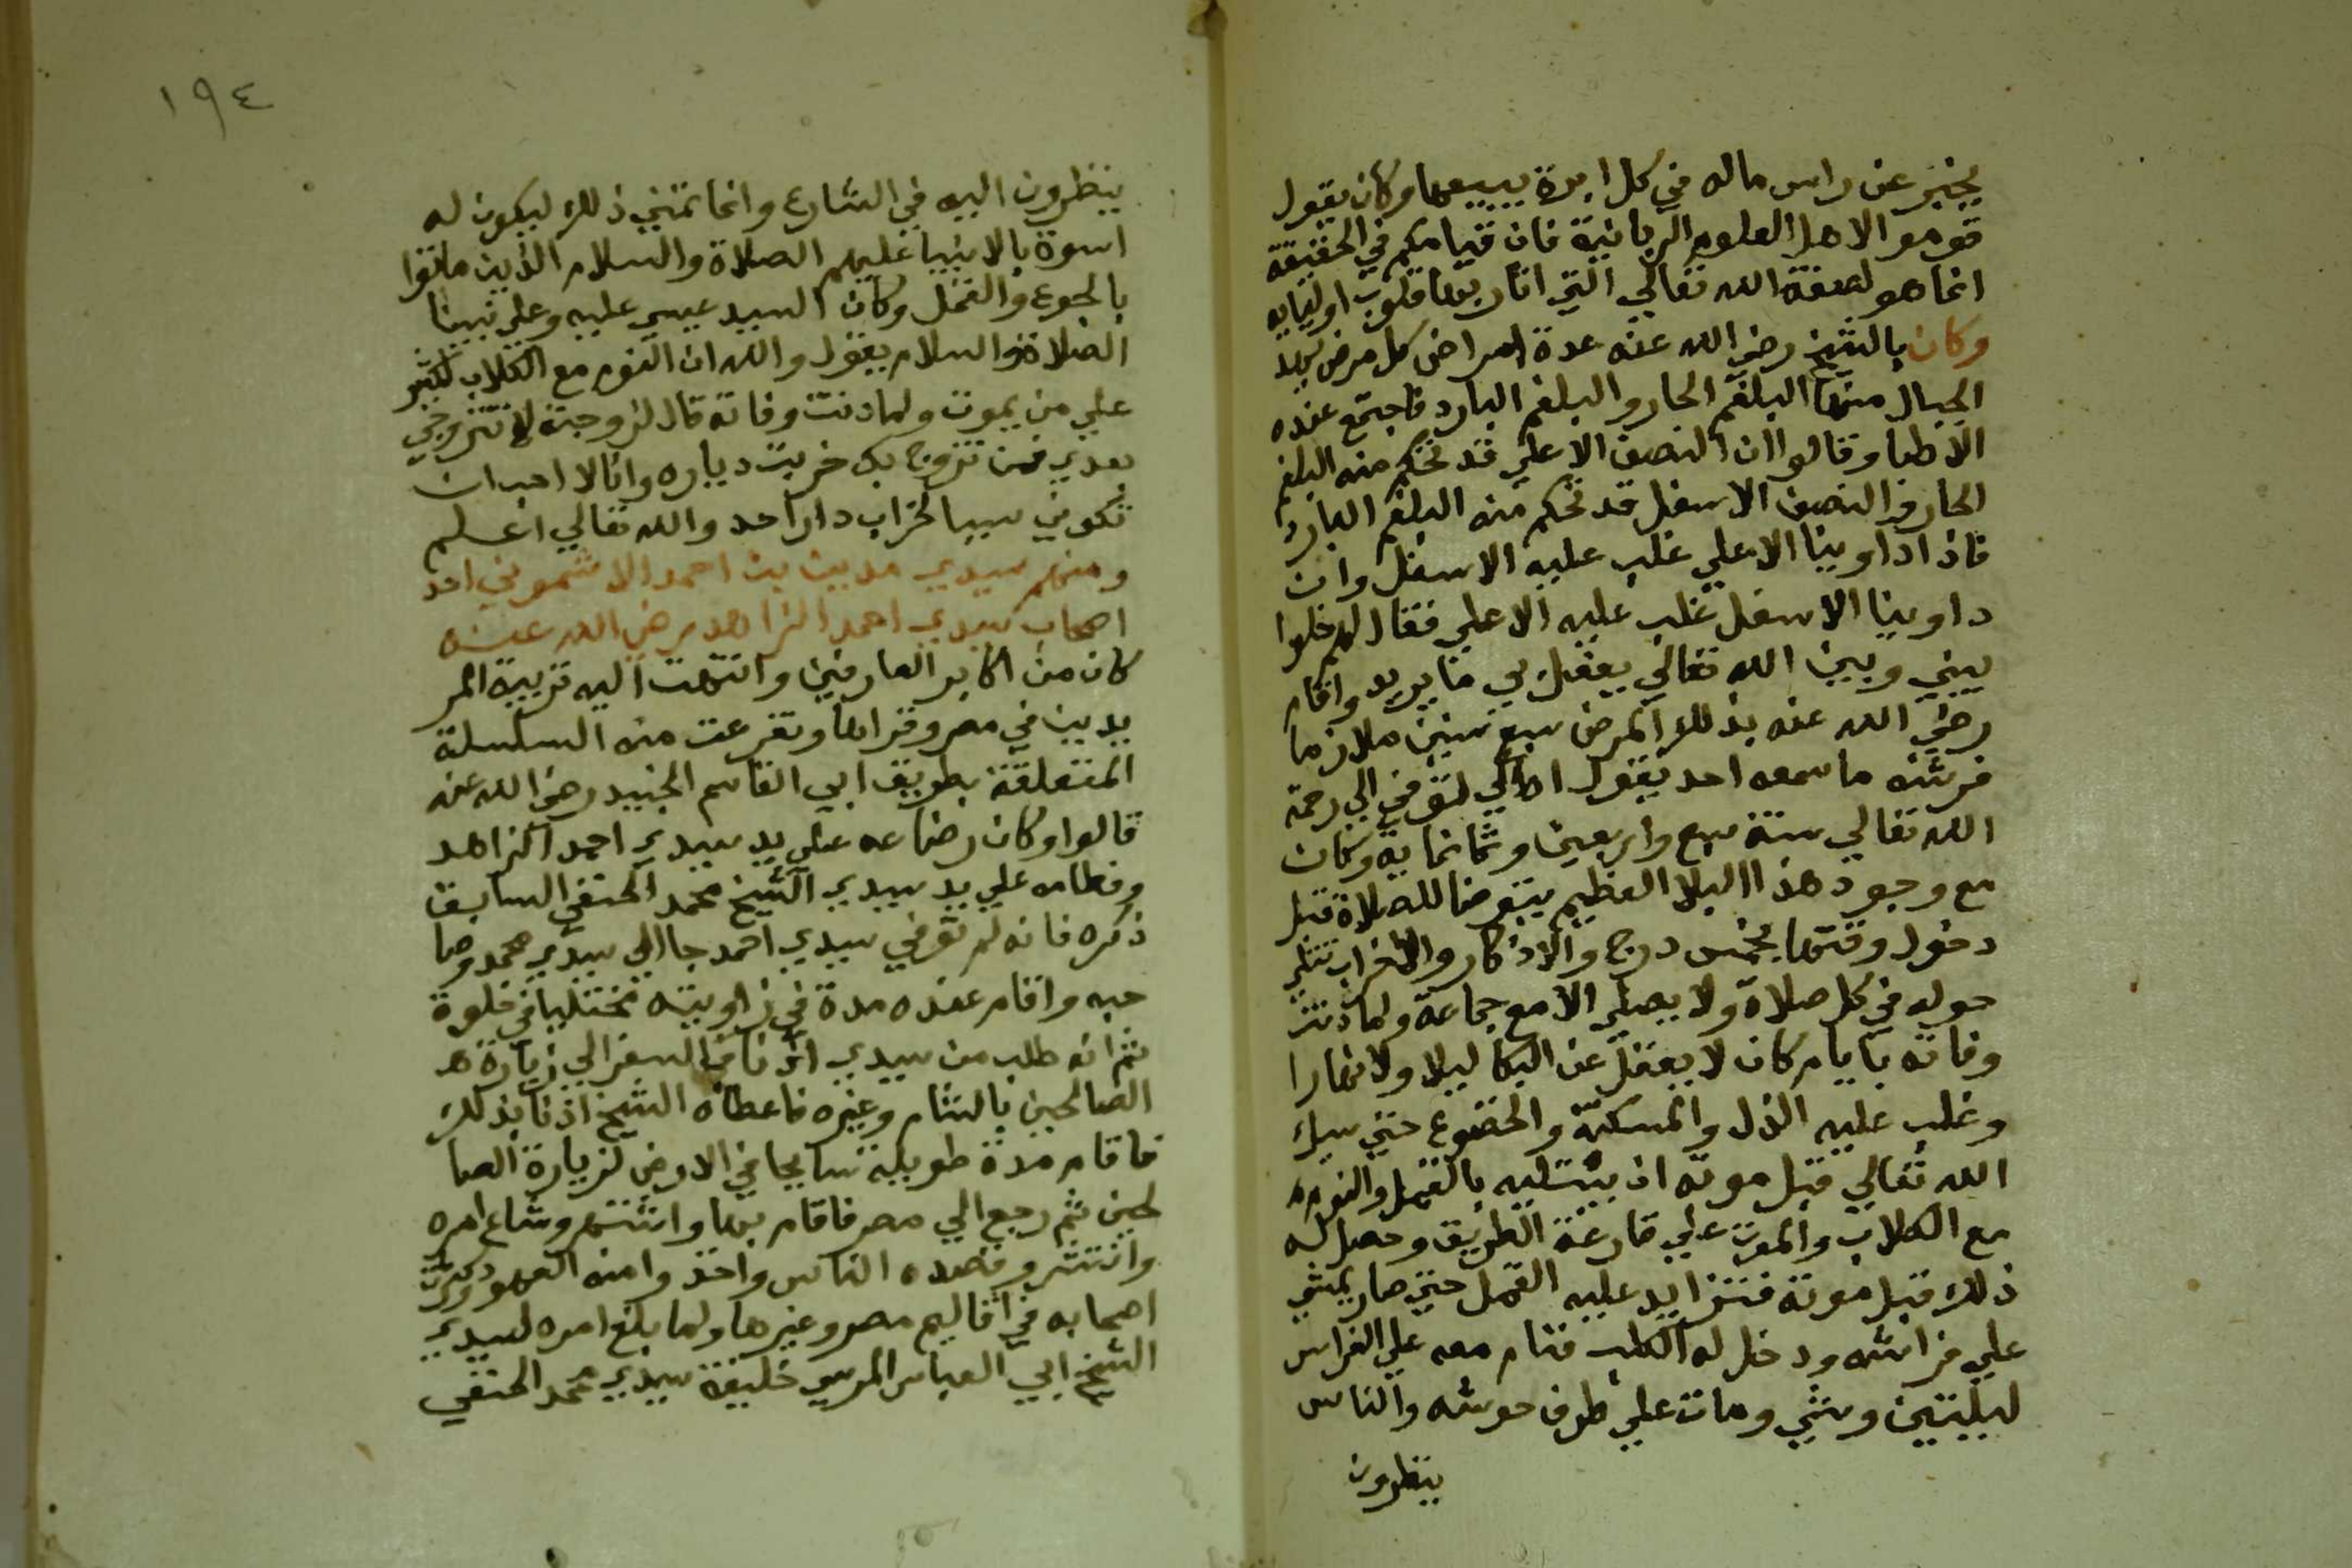 يخبر عن راس ماله في كل ابرة يبيعها وكان يقول
قوموا لاهل العلوم الربانية فان قيامكم في الحقيقة
انما هو لصفة الله تعالي التي انار بها قلوب اوليايه
وكان بالشيخ رضي الله عنه عدة امراض كل مرض يهد
الجبال منها البلغم الحار والبلغم البارد فاجتمع عنده
الاطبا وقالوا ان النصف الاعلي قد تحكم منه البلغم
الحار والنصف الاسفل قد تحكم منه البلغم البارد
فاذا داوينا الاعلي غلب عليه الاسفل وان
داوينا الاسفل غلب عليه الاعلي فقال لهم خلوا
بيني وبين الله تعالي يفعل بي ما يريد واقام
رضي الله عنه بذلك المرض سبع سنين ملازما
فرشه ما سمعه احد يقول اه الي توفي الي رحمة
الله تعالي سنة سبع واربعين وثمانماية وكان
مع وجود هذا البلا العظيم يتوضا للصلاة قبل
دخول وقتها بخمس درج والاذكار والاحزاب تتلي
حوله في كل صلاة ولا يصلي الا مع جماعة ولما دنت
وفاته بايام كان لا يغفل عن البكا ليلا ولا نهارا
وغلب عليه الذل والمسكنة والخضوع حتي سيل
الله تعالي قبل موته ان يبتليه بالقمل والنوم
مع الكلاب والموت علي قارعة الطريق وحصل له
ذلك قبل موته فتزايد عليه القمل حتي صار يمشي
علي فراشه ودخل له الكلب فنام معه علي الفراس
ليليتين وشي ومات علي طرف حوشه والناس
ينظرون
١٩٤
ينظرون اليه في الشارع وانما تمني ذلك ليكون له
اسوة بالانبيا عليهم الصلاة والسلام الذين ماتوا
بالجوع والقمل وكان السيد عيسي عليه وعلي نبينا
الصلاة والسلام يقول والله ان النوم مع الكلاب لكثير
علي من يموت ولما دنت وفاته قال لزوجته لا تتزوجي
بعدي فمن تزوج بك خربت دياره وانا لا احب ان
تكوني سببا لخراب دار احد والله تعالي اعلم
ومنهم سيدي مدين بن احمد الاشموني احد
اصحاب سيدي احمد الزاهد رضي الله عنه
كان من اكابر العارفين وانتهت اليه تربية المر
يدين في مصر وقراها وتفرعت منه السلسلة
المتعلقة بطريق ابي القاسم الجنيد رضي الله عنه
قالوا وكان رضاعه علي يد سيدي احمد الزاهد
وفطامه علي يد سيدي الشيخ محمد الحنفي السابق
ذكره فانه لم توفي سيدي احمد جا الي سيدي محمد وصا
حبه واقام عنده مدة في زاويته مختليا في خلوة
ثم انه طلب من سيدي اذنا في السفر الي زيارة
الصالحين بالشام وغيره فاعطاه الشيخ اذنا بذلك
فاقام مدة طويلة سايحا في الارض لزيارة الصا
لحين ثم رجع الي مصر فاقام بها واشتهر وشاع امره
وانتشر وقصده الناس واخذوا منه العهود وكثرت
اصحابه في اقاليم مصر وغيرها ولما بلغ امره لسيدي
الشيخ ابي العباس المرسي خليفة سيدي محمد الحنفي